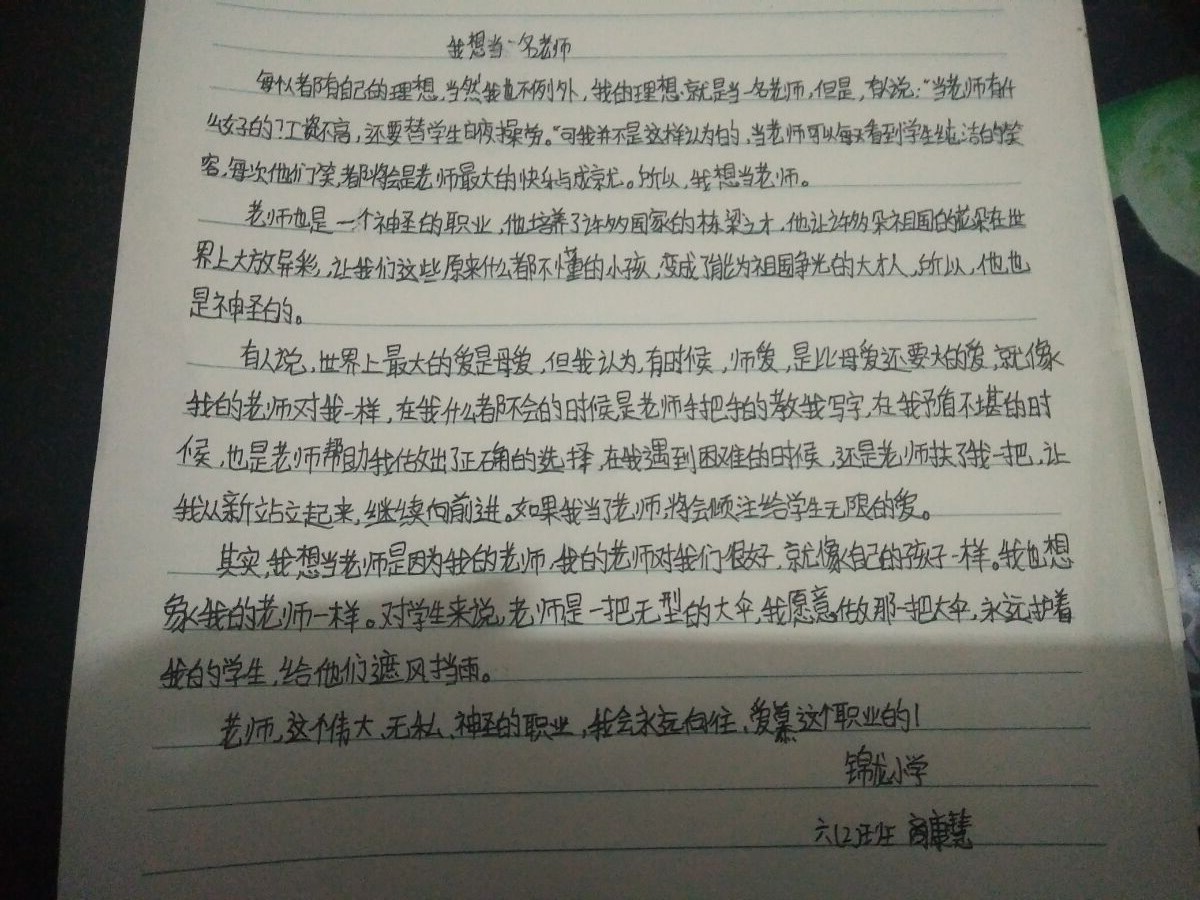 我想当一名老师
每个人都有自己的理想,当然我也不例外,我的理想就是当一名老师,但是,有人说:“当老师有什
么好的?工资不高,还要替学生日夜操劳。”可我并不是这样认为的,当老师可以每天看到学生纯洁的笑
容,每次他们笑,都将会是老师最大的快乐与成就。所以,我想当老师。
老师也是一个神圣的职业,他培养了许多国家的栋梁之才,他让许多朵祖国的花朵在世
界上大放异彩,让我们这些原来什么都不懂的小孩,变成了能为祖国争光的大才人,所以,他也
是神圣的。
有人说,世界上最大的爱是母爱,但我认为,有时候,师爱,是比母爱还要大的爱,就像
我的老师对我一样,在我什么都不会的时候是老师手把手的教我写字,在我矛盾不堪的时
候,也是老师帮助我做出了正确的选择,在我遇到困难的时候,还是老师扶了我一把,让
我从新站立起来,继续向前进。如果我当了老师,将会倾注给学生无限的爱。
其实,我想当老师是因为我的老师,我的老师对我们很好,就像自己的孩子一样。我也想
象我的老师一样。对学生来说,老师是一把无型的大伞,我愿意做那一把大伞,永远护着
我的学生,给他们遮风挡雨。
老师,这个伟大、无私、神圣的职业,我会永远向往、爱慕这个职业的!
锦龙小学
六(2)班 康慧